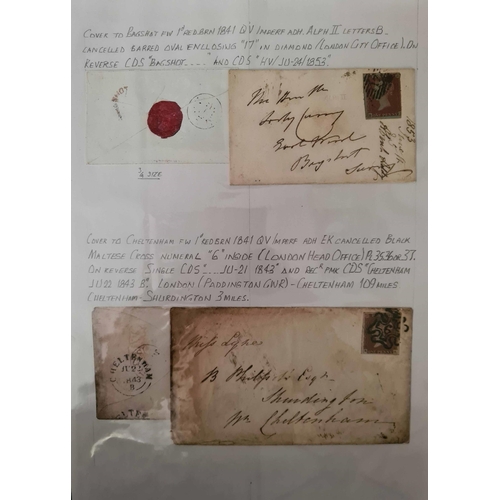 COVER TO BAGSHOT FW 1ᵈ RED BRN 1841 QV IMPERF ADH. ALPH II LETTERS B_
CANCELLED BARRED OVAL ENCLOSING "17" IN DIAMOND (LONDON CITY OFFICE). ON
REVERSE CDS "BAGSHOT....." AND CDS "HV/JU-24/1853"
BAGSHOT
1853
Bagshot
Surry
¾ SIZE
COVER TO CHELTENHAM FW 1ᵈ RED BRN 1841 QV IMPERF ADH EK CANCELLED BLACK
MALTESE CROSS NUMERAL "6" INSIDE (LONDON HEAD OFFICE)
ON REVERSE SINGLE CDS "..... JU-21 1843" AND REC'D PMK CDS "CHELTENHAM
JU 22 1843 B". LONDON (PADDINGTON GWR) - CHELTENHAM 109 MILES
CHELTENHAM - SHURDINGTON 3 MILES.
CHELTENHAM
JU 22
1843
B
Shurdington
Nr. Cheltenham